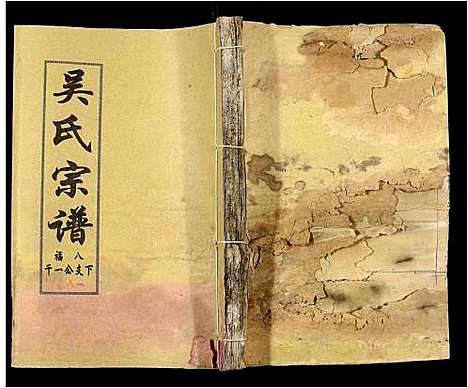 吴氏宗谱
福 八
千一公支下